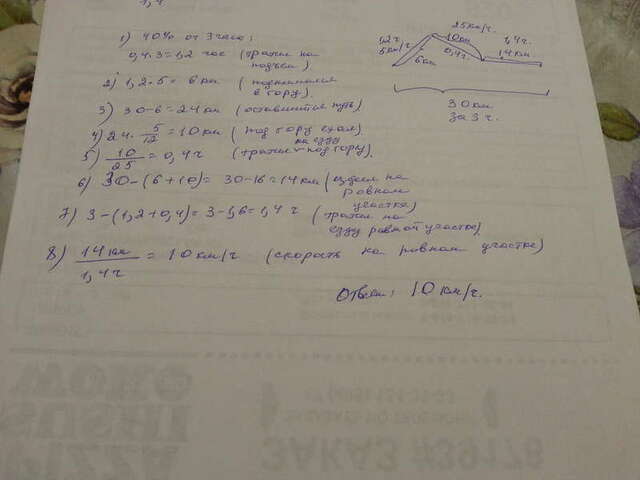 1,4
1) 40% от 3 часов;
0,4·3=1,2 час (тратил на подъём)
2) 1,2·5= 6 км ( поднимался в гору)
3) 30-6=24 км (оставшийся путь)
4) 24· 5/12 =10 км ( под гору ехал)
5) 10/25 = 0,4 ч (тратил под гору).
6) 30-(6+10)= 30-16=14 км ( на ровном участке)
7) 3-(1,2+0,4)=3-1,6=1,4 ч (тратил на езду ровной участке)
8) 14 км/1,4 ч = 10 км/ч (скорость на ровном участке)
Ответ: 10 км/ч.
25 км/ч.
1,2 ч
5 км/ч
6 км
10 км
0,4 ч
1,4 ч
14 км
30 км
за 3 ч.
ЗАКАЗ #39178